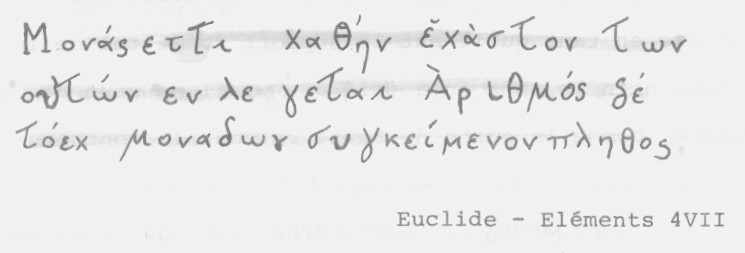 Μονάς εττι χαθήν ἔχὰστον των
οὐτών εν λε γέται Ὰριθμός δέ
τόεχ μοναδων συγκείμενον πληθος
Euclide - Eléments 4VII